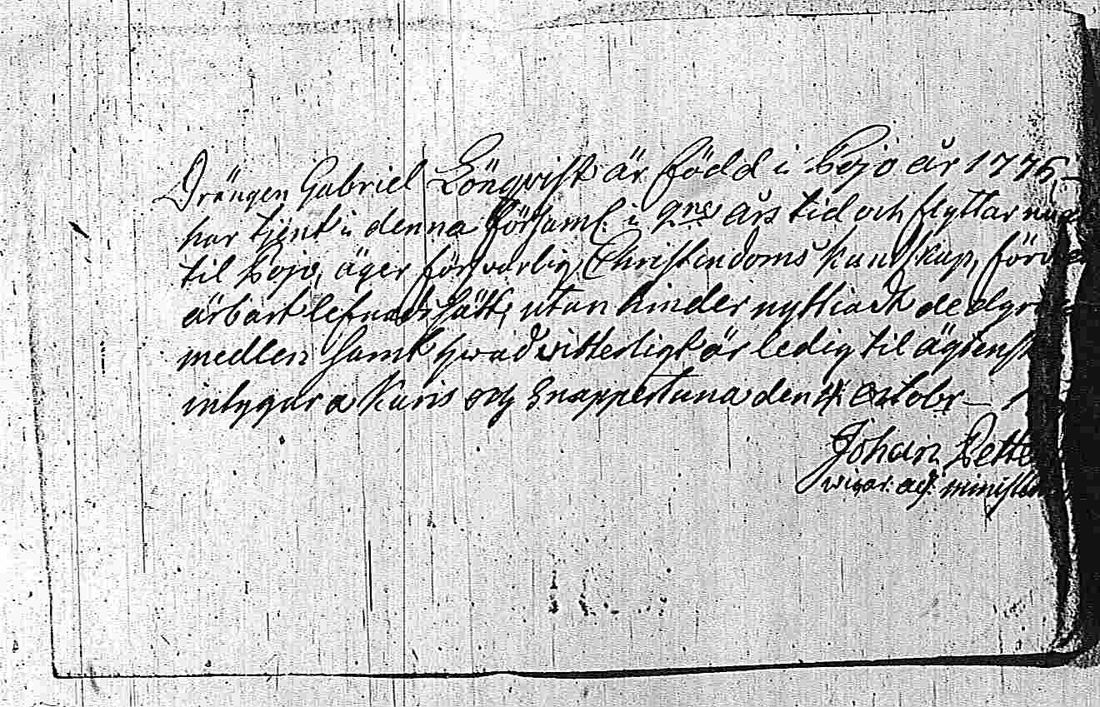 Drängen Gabriel Lönqvist är född i Pojo år 1776,
har tjent i denna församl. i 2ne års tid och flyttar nu
til Pojo, äger försvarlig Christendoms kunskap, fört
ärbart lefnads sätt, utan hinder nyttiadt
medlen samt hwad witterligt är ledig til ägtensk
intygar a Karis och Snappertuna den 4 Octobr
Johan Pette
vicar. adj. minist